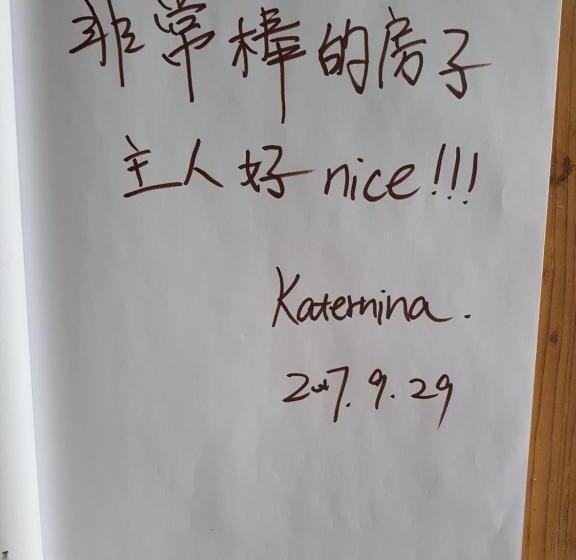 非常棒的房子
主人好 nice!!!
Katernina.
2017.9.29